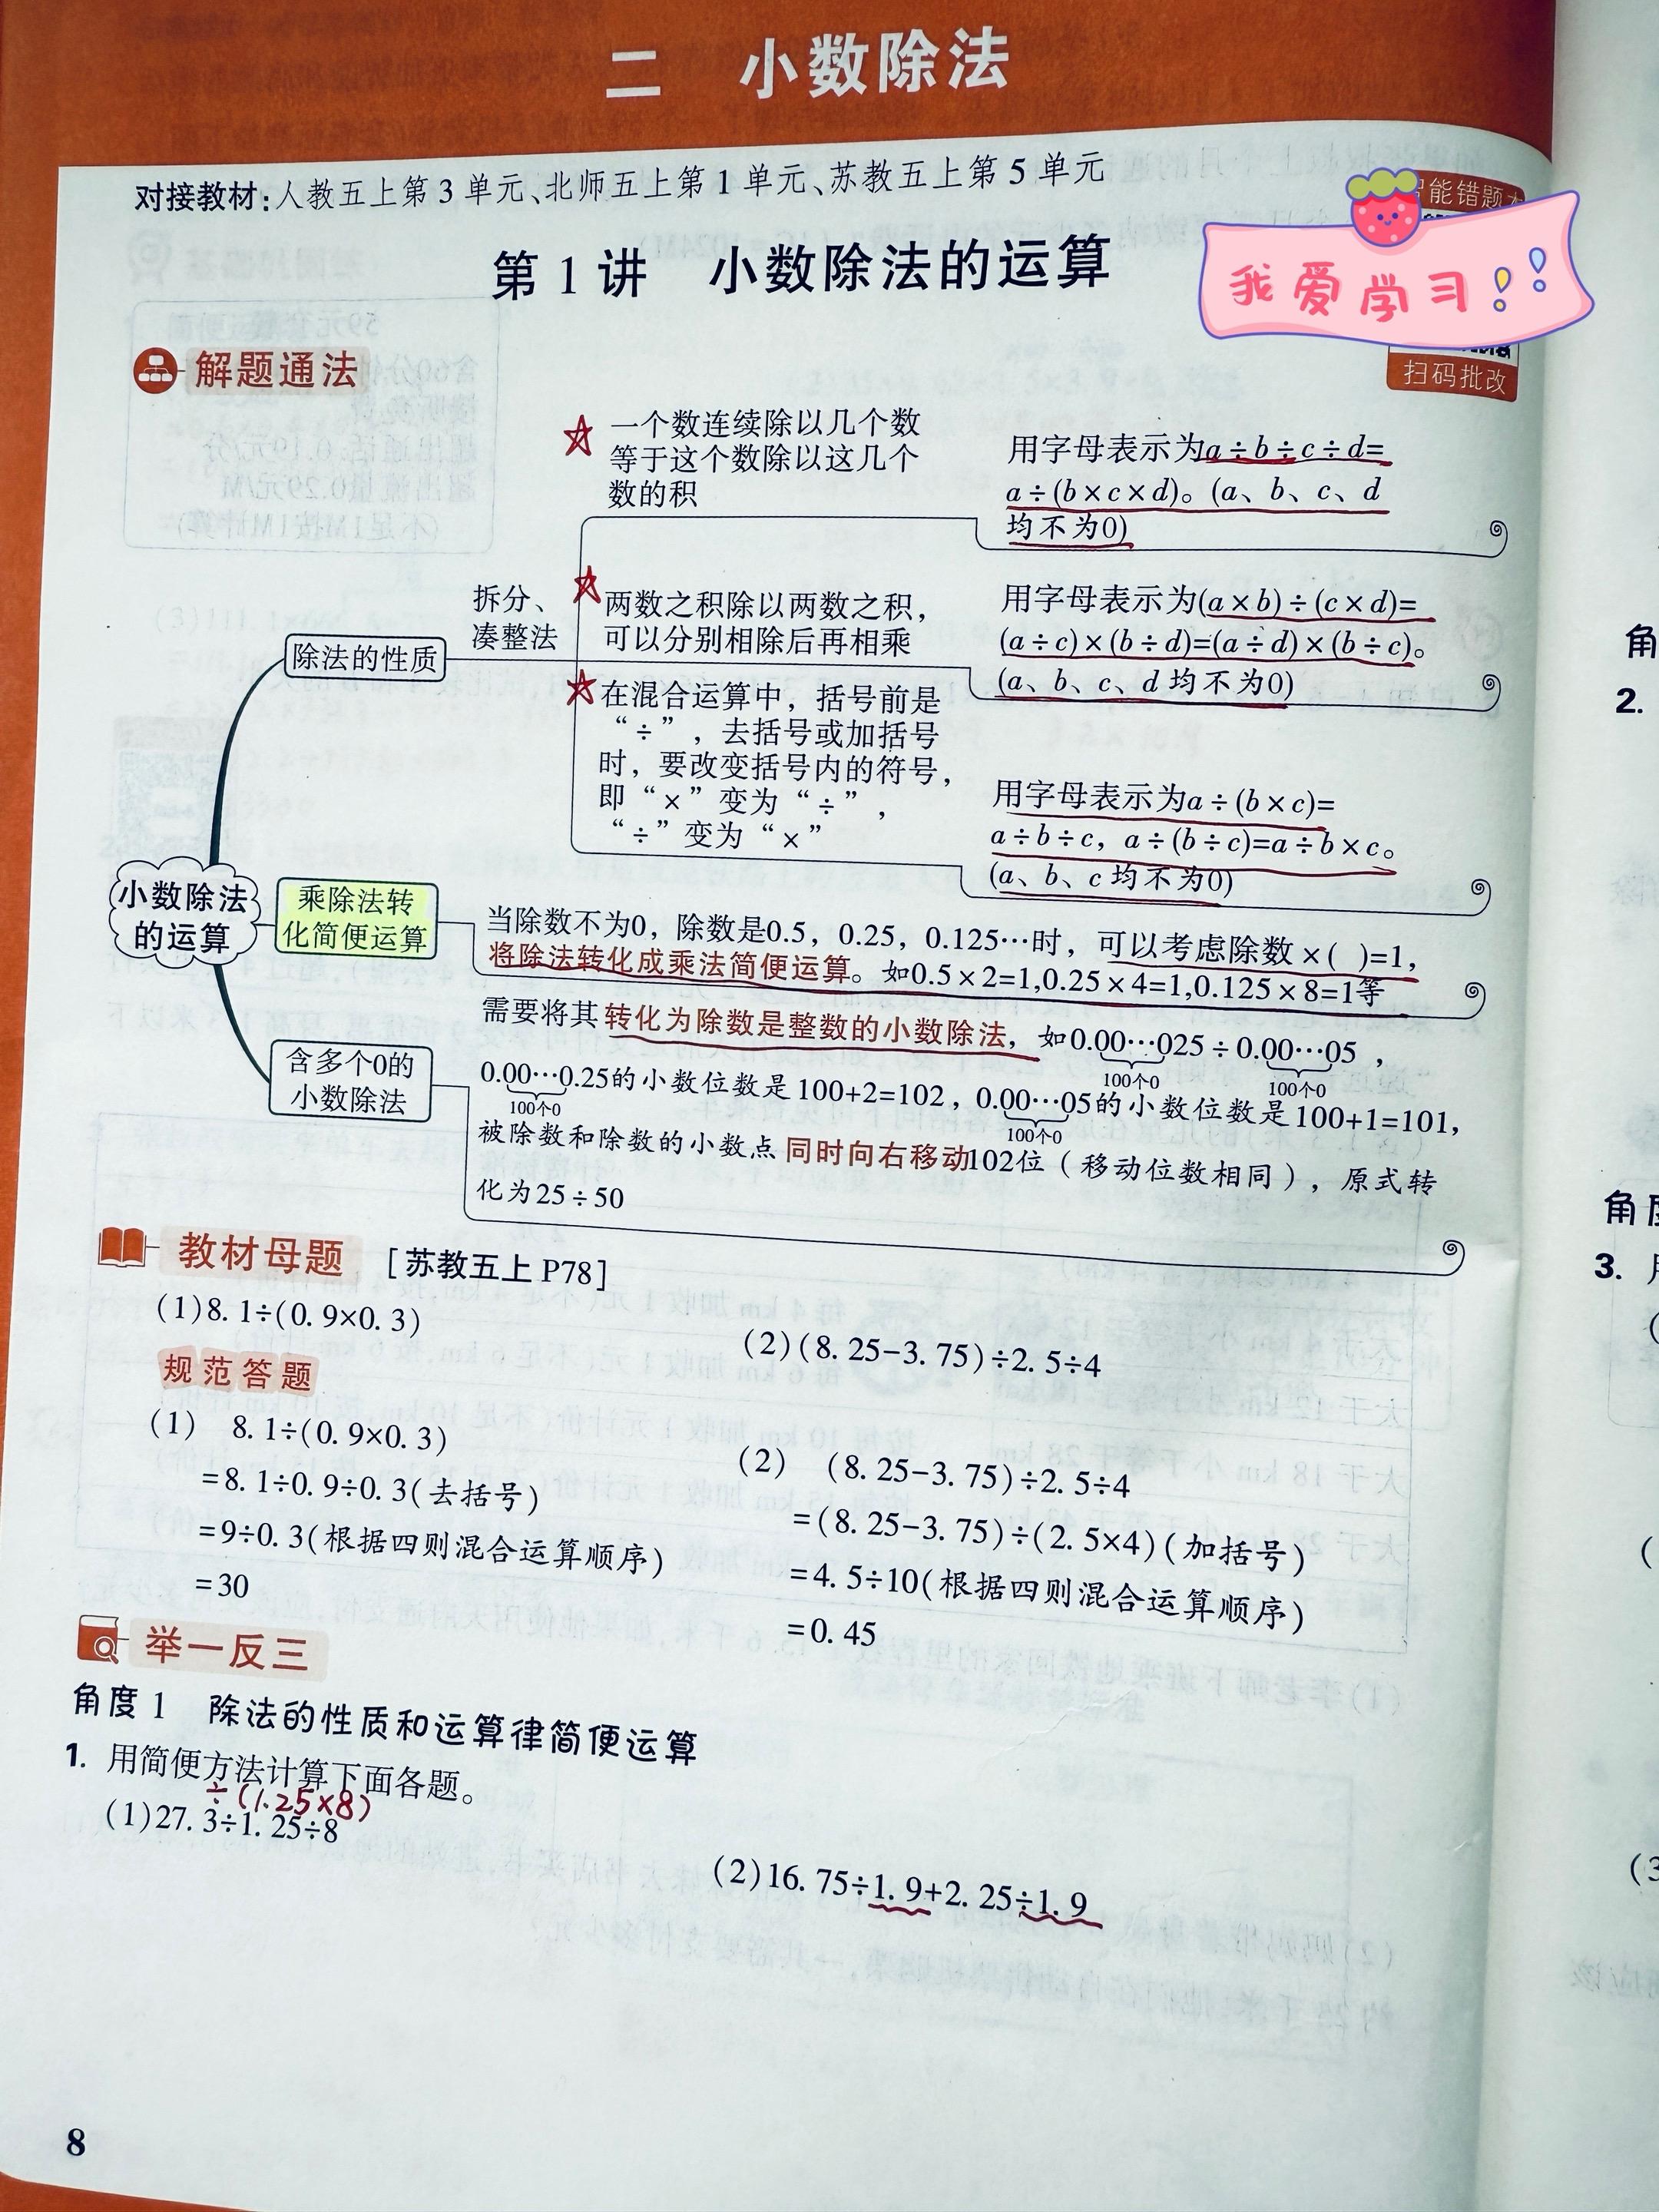 二 小数除法
对接教材:人教五上第3单元、北师五上第1单元、苏教五上第5单元
能错题本
我爱学习!!
第1讲 小数除法的运算
扫码批改
解题通法
一个数连续除以几个数
等于这个数除以这几个
数的积
用字母表示为a÷b÷c÷d=
a÷(b×c×d)。(a、b、c、d
均不为0)
拆分、
凑整法
两数之积除以两数之积,
可以分别相除后再相乘
用字母表示为(a×b)÷(c×d)=
(a÷c)×(b÷d)=(a÷d)×(b÷c)。
(a、b、c、d 均不为0)
除法的性质
在混合运算中,括号前是
“÷”,去括号或加括号
时,要改变括号内的符号,
即“×”变为“÷”,
“÷”变为“×”
用字母表示为a÷(b×c)=
a÷b÷c, a÷(b÷c)=a÷b×c。
(a、b、c 均不为0)
小数除法
的运算
乘除法转
化简便运算
当除数不为0,除数是0.5,0.25,0.125…时,可以考虑除数×( )=1,
将除法转化成乘法简便运算。如0.5×2=1,0.25×4=1,0.125×8=1等
含多个0的
小数除法
需要将其转化为除数是整数的小数除法,如0.00…025÷0.00…05,
100个0 100个0
0.00…0.25的小数位数是100+2=102,0.00…05的小数位数是100+1=101,
100个0 100个0
被除数和除数的小数点同时向右移动102位(移动位数相同),原式转
化为25÷50
教材母题 [苏教五上P78]
(1)8.1÷(0.9×0.3)
(2)(8.25-3.75)÷2.5÷4
规范答题
(1) 8.1÷(0.9×0.3)
=8.1÷0.9÷0.3(去括号)
=9÷0.3(根据四则混合运算顺序)
=30
(2) (8.25-3.75)÷2.5÷4
=(8.25-3.75)÷(2.5×4)(加括号)
=4.5÷10(根据四则混合运算顺序)
=0.45
举一反三
角度1 除法的性质和运算律简便运算
1. 用简便方法计算下面各题。
÷(1.25×8)
(1)27.3÷1.25÷8
(2)16.75÷1.9+2.25÷1.9
8
角
2.
角度
3.